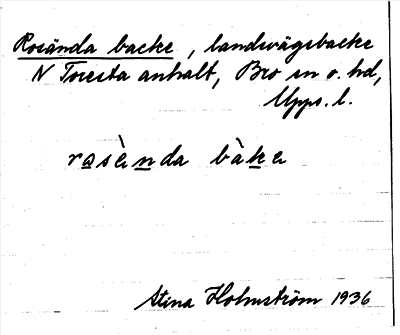 Rosända backe, landsvägsbacke
N Toresta anhalt, Bro sn o. hd,
Upps. l.
rosènda bàke
Stina Holmström 1936